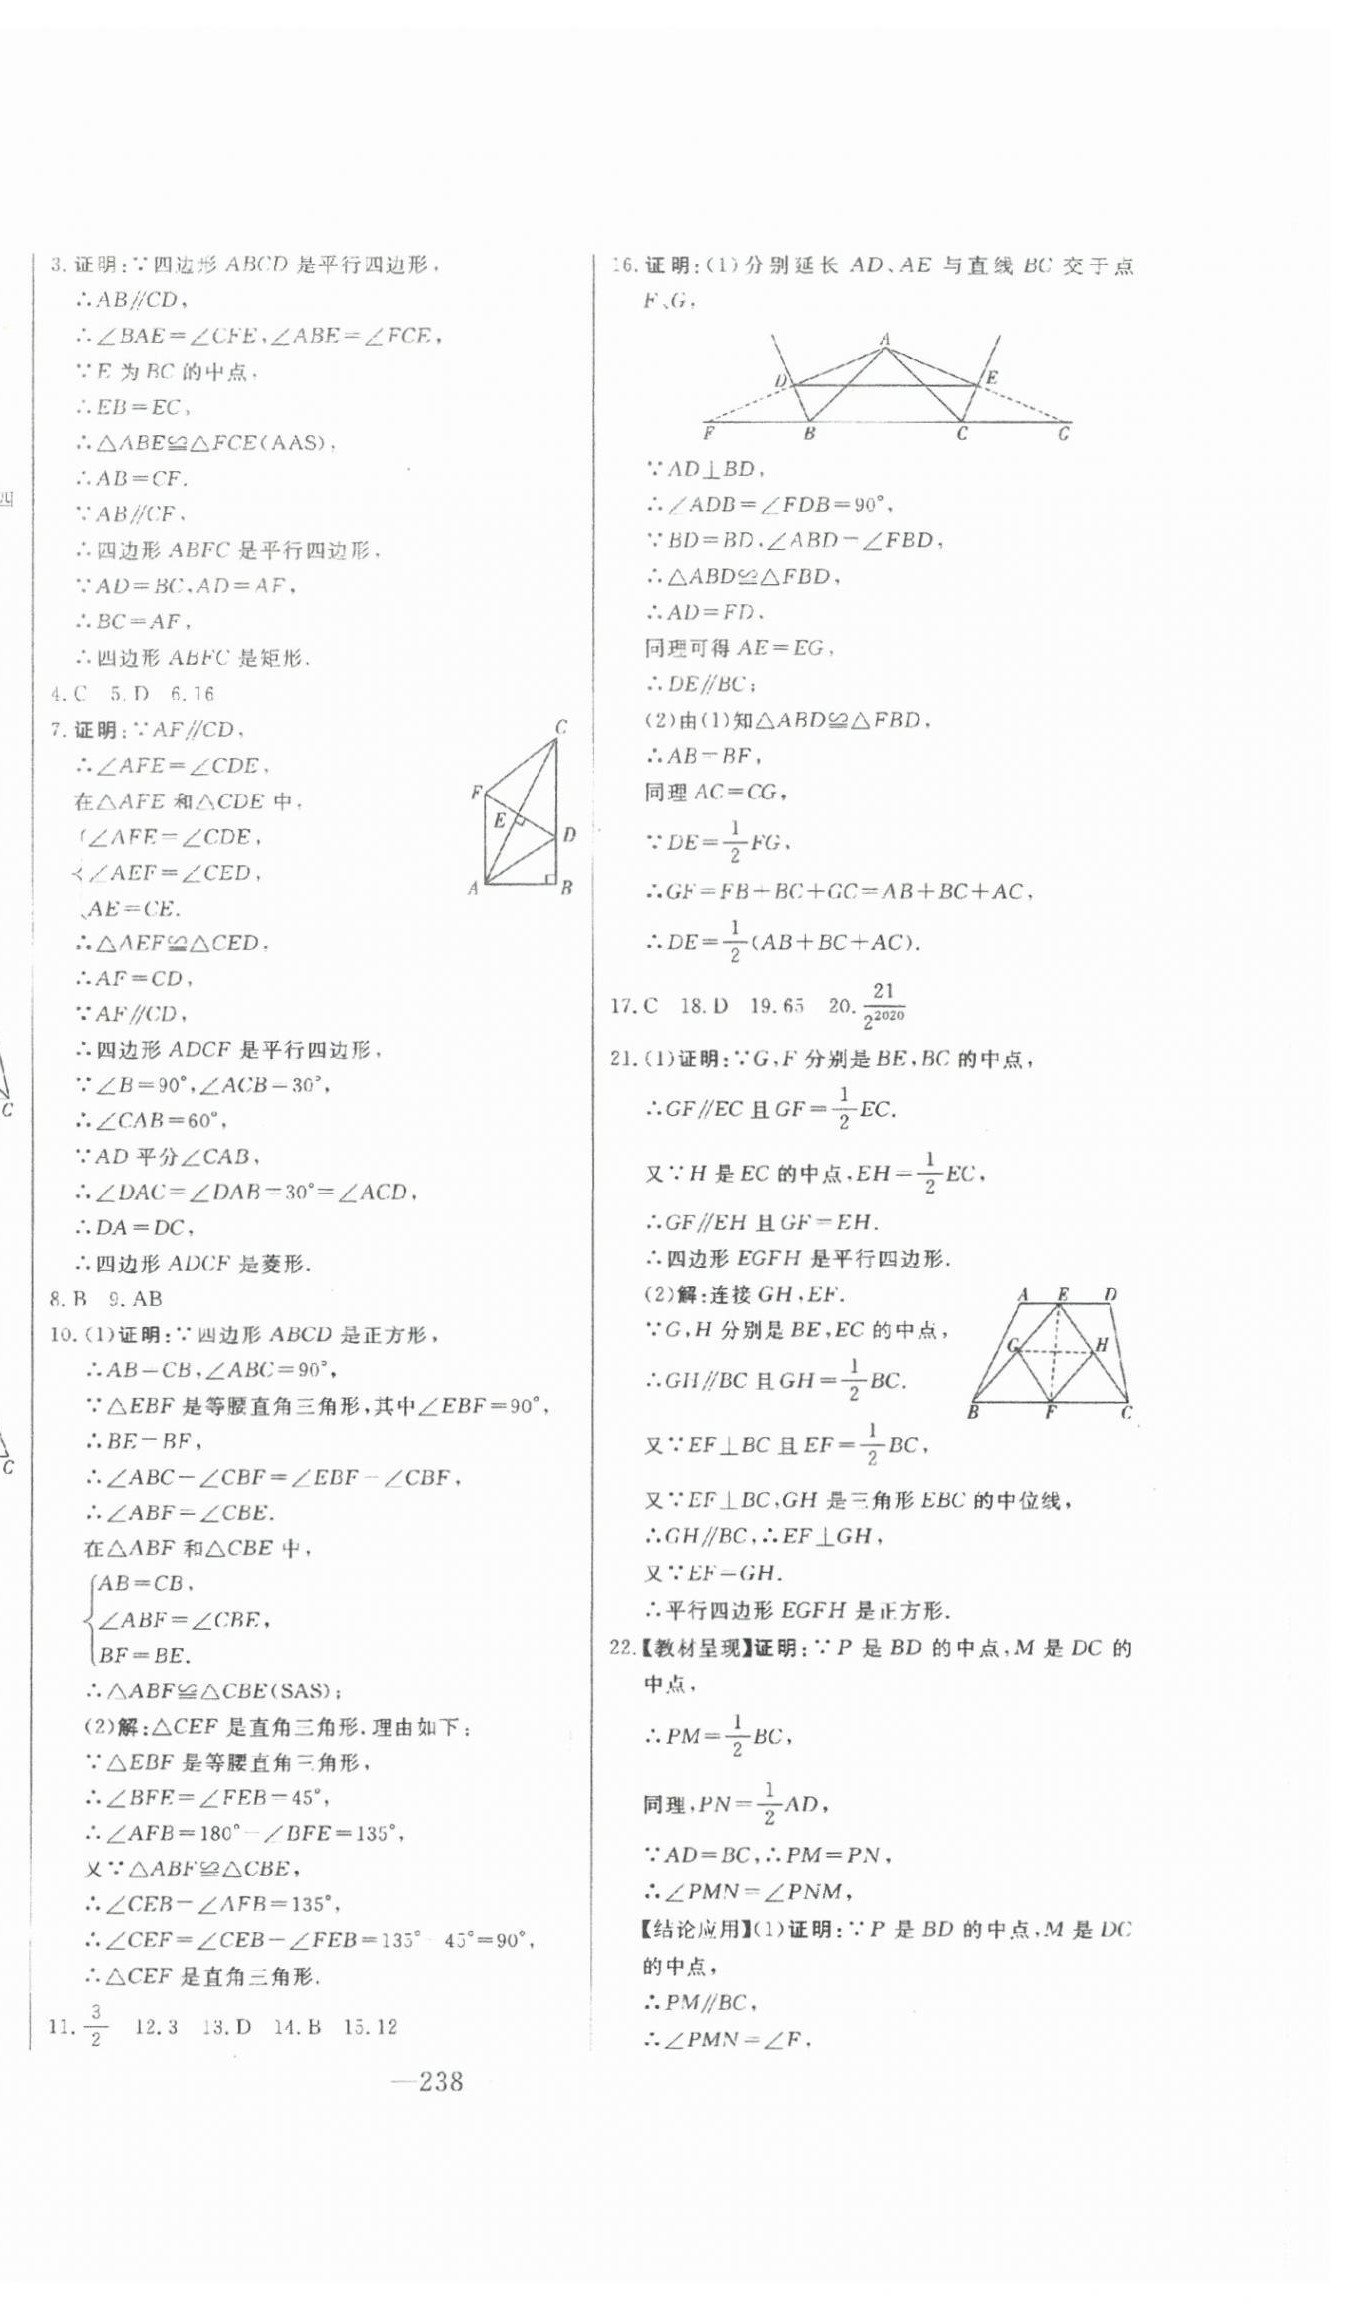 3.证明:∵四边形 ABCD 是平行四边形,
∴AB∥CD,
∴∠BAE=∠CFE,∠ABE=∠FCE,
∵E 为 BC 的中点,
∴EB=EC,
∴△ABE≌△FCE(AAS),
∴AB=CF.
∵AB∥CF,
∴四边形 ABFC 是平行四边形,
∵AD=BC,AD=AF,
∴BC=AF,
∴四边形 ABFC 是矩形.
4.C 5.D 6.16
7.证明:∵AF∥CD,
∴∠AFE=∠CDE,
在△AFE 和△CDE 中,
∠AFE=∠CDE,
∠AEF=∠CED,
AE=CE.
∴△AEF≌△CED,
∴AF=CD,
∵AF∥CD,
∴四边形 ADCF 是平行四边形,
∵∠B=90°,∠ACB=30°,
∴∠CAB=60°,
∵AD 平分∠CAB,
∴∠DAC=∠DAB=30°=∠ACD,
∴DA=DC,
∴四边形 ADCF 是菱形.
C
F
E
D
A
B
8.B 9.AB
10.(1)证明:∵四边形 ABCD 是正方形,
∴AB=CB,∠ABC=90°,
∵△EBF 是等腰直角三角形,其中∠EBF=90°,
∴BE=BF,
∴∠ABC-∠CBF=∠EBF-∠CBF,
∴∠ABF=∠CBE.
在△ABF 和△CBE 中,
AB=CB,
∠ABF=∠CBE,
BF=BE.
∴△ABF≌△CBE(SAS);
(2)解:△CEF 是直角三角形.理由如下:
∵△EBF 是等腰直角三角形,
∴∠BFE=∠FEB=45°,
∴∠AFB=180°-∠BFE=135°,
又∵△ABF≌△CBE,
∴∠CEB=∠AFB=135°,
∴∠CEF=∠CEB-∠FEB=135° 45°=90°,
∴△CEF 是直角三角形.
11.3/2 12.3 13.D 14.B 15.12
16.证明:(1)分别延长 AD、AE 与直线 BC 交于点
F、G,
A
D
E
F
B
C
G
∵AD⊥BD,
∴∠ADB=∠FDB=90°,
∵BD=BD,∠ABD=∠FBD,
∴△ABD≌△FBD,
∴AD=FD,
同理可得 AE=EG,
∴DE∥BC;
(2)由(1)知△ABD≌△FBD,
∴AB=BF,
同理 AC=CG,
∵DE=1/2FG,
∴GF=FB+BC+GC=AB+BC+AC,
∴DE=1/2(AB+BC+AC).
17.C 18.D 19.65 20.21/2²⁰²⁰
21.(1)证明:∵G,F 分别是 BE,BC 的中点,
∴GF∥EC 且 GF=1/2EC.
又∵H 是 EC 的中点,EH=1/2EC,
∴GF∥EH 且 GF=EH.
∴四边形 EGFH 是平行四边形.
(2)解:连接 GH,EF.
∵G,H 分别是 BE,EC 的中点,
∴GH∥BC 且 GH=1/2BC.
又∵EF⊥BC 且 EF=1/2BC,
A
E
D
G
H
B
F
C
又∵EF⊥BC,GH 是三角形 EBC 的中位线,
∴GH∥BC,∴EF⊥GH,
又∵EF=GH.
∴平行四边形 EGFH 是正方形.
22.【教材呈现】证明:∵P 是 BD 的中点,M 是 DC 的
中点,
∴PM=1/2BC,
同理,PN=1/2AD,
∵AD=BC,∴PM=PN,
∴∠PMN=∠PNM,
【结论应用】(1)证明:∵P 是 BD 的中点,M 是 DC
的中点,
∴PM∥BC,
∴∠PMN=∠F,
四
C
C
—238